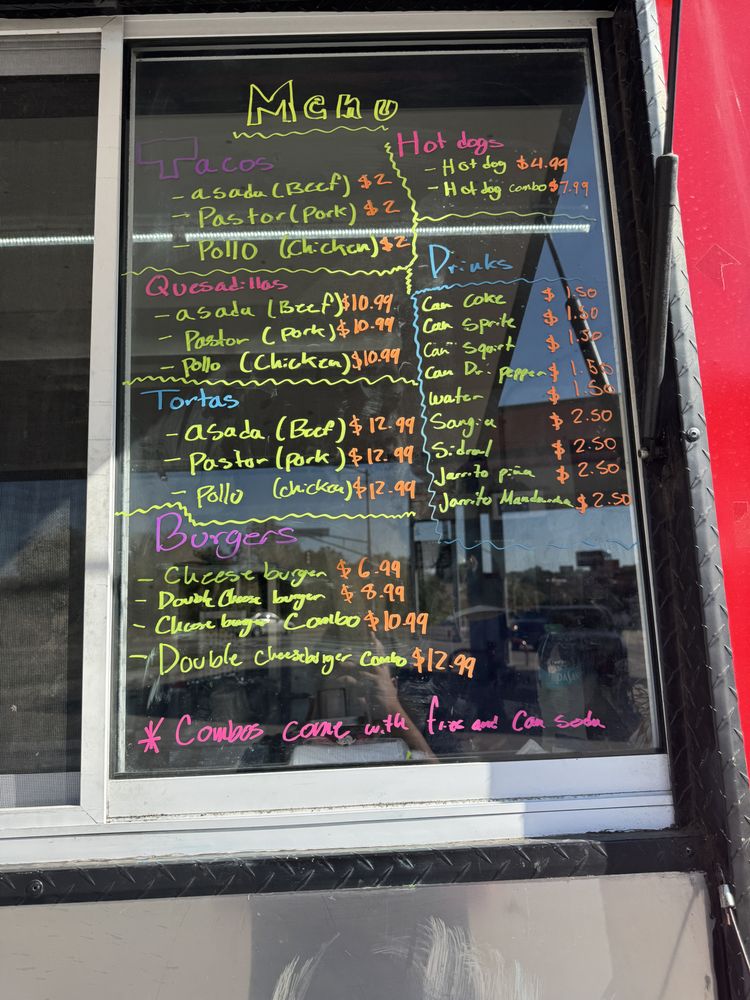 Menu
Tacos
- asada (Beef) $2
- Pastor (Pork) $2
- Pollo (Chicken) $2
Quesadillas
- asada (Beef) $10.99
- Pastor (Pork) $10.99
- Pollo (Chicken) $10.99
Tortas
- asada (Beef) $12.99
- Pastor (pork) $12.99
- Pollo (chicken) $12.99
Burgers
- Cheese burger $6.99
- Double Cheese burger $8.99
- Cheese burger Combo $10.99
- Double cheeseburger Combo $12.99
Hot dogs
- Hot dog $4.99
- Hot dog combo $7.99
Drinks
Can Coke $1.50
Can Sprite $1.50
Can Squirt $1.50
Can Dr. pepper $1.50
water $1.50
Sangria $2.50
Sidral $2.50
Jarrito piña $2.50
Jarrito Mandarina $2.50
* Combos come with fries and Can soda
DASANI